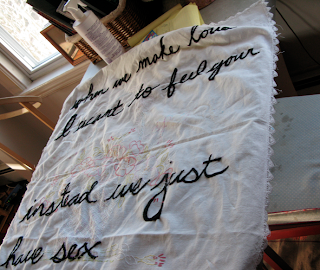 when we make love
I want to feel your
instead we just
have sex